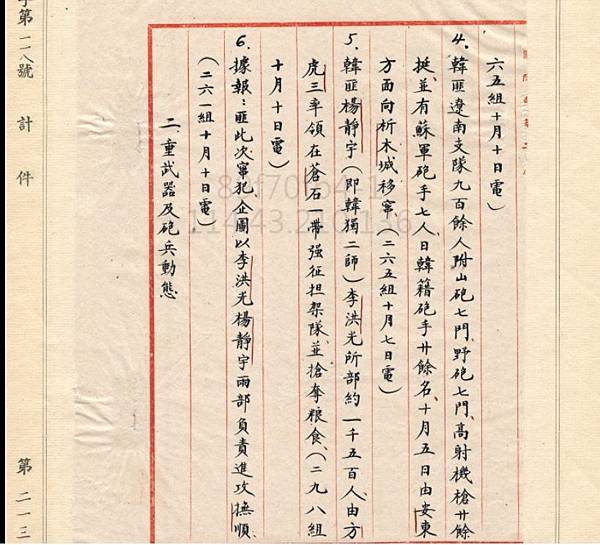 六五組十月十日電）
4. 韓匪遼南支隊九百餘人附山砲七門、野砲七門、高射機槍廿餘
挺、並有蘇軍砲手七人、日韓籍砲手廿餘名、十月五日由安東
方面向析木城移竄（二六五組十月七日電）
5. 韓匪楊靜宇（即韓獨二師）李洪光所部約一千五百人、由方
虎三率領在蒼石一帶强征担架隊、並搶奪粮食、（二九八組
十月十日電）
6. 據報：匪此次竄犯、企圖以李洪光楊靜宇兩部負責進攻撫順
（二六一組十月十日電）
二、重武器及砲兵動態
字第一一八號 計 件 第二一三